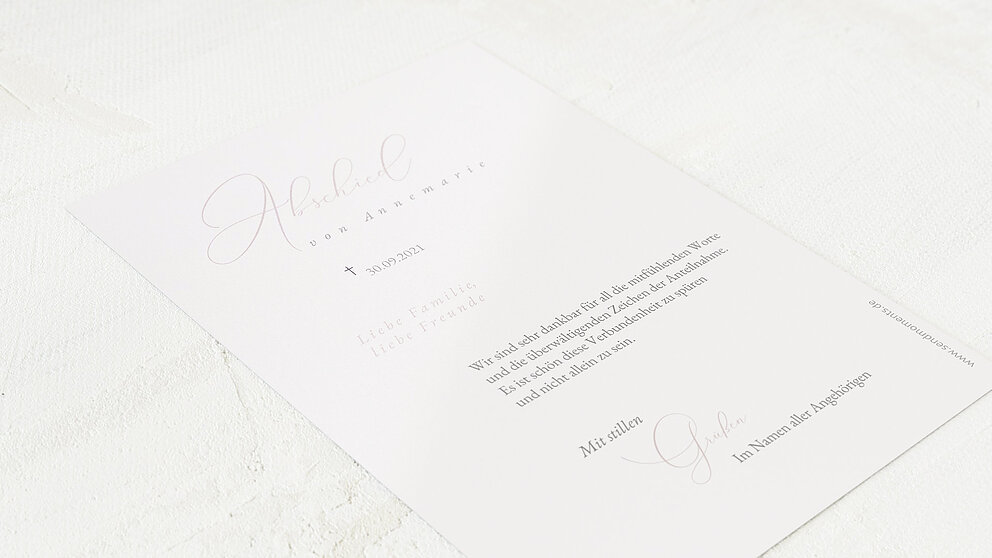 Abschied
von Annemarie
† 30.09.2021
Liebe Familie,
liebe Freunde
Wir sind sehr dankbar für all die mitfühlenden Worte
und die überwältigenden Zeichen der Anteilnahme.
Es ist schön diese Verbundenheit zu spüren
und nicht allein zu sein.
Mit stillen
Grüßen
Im Namen aller Angehörigen
www.sendmoments.de